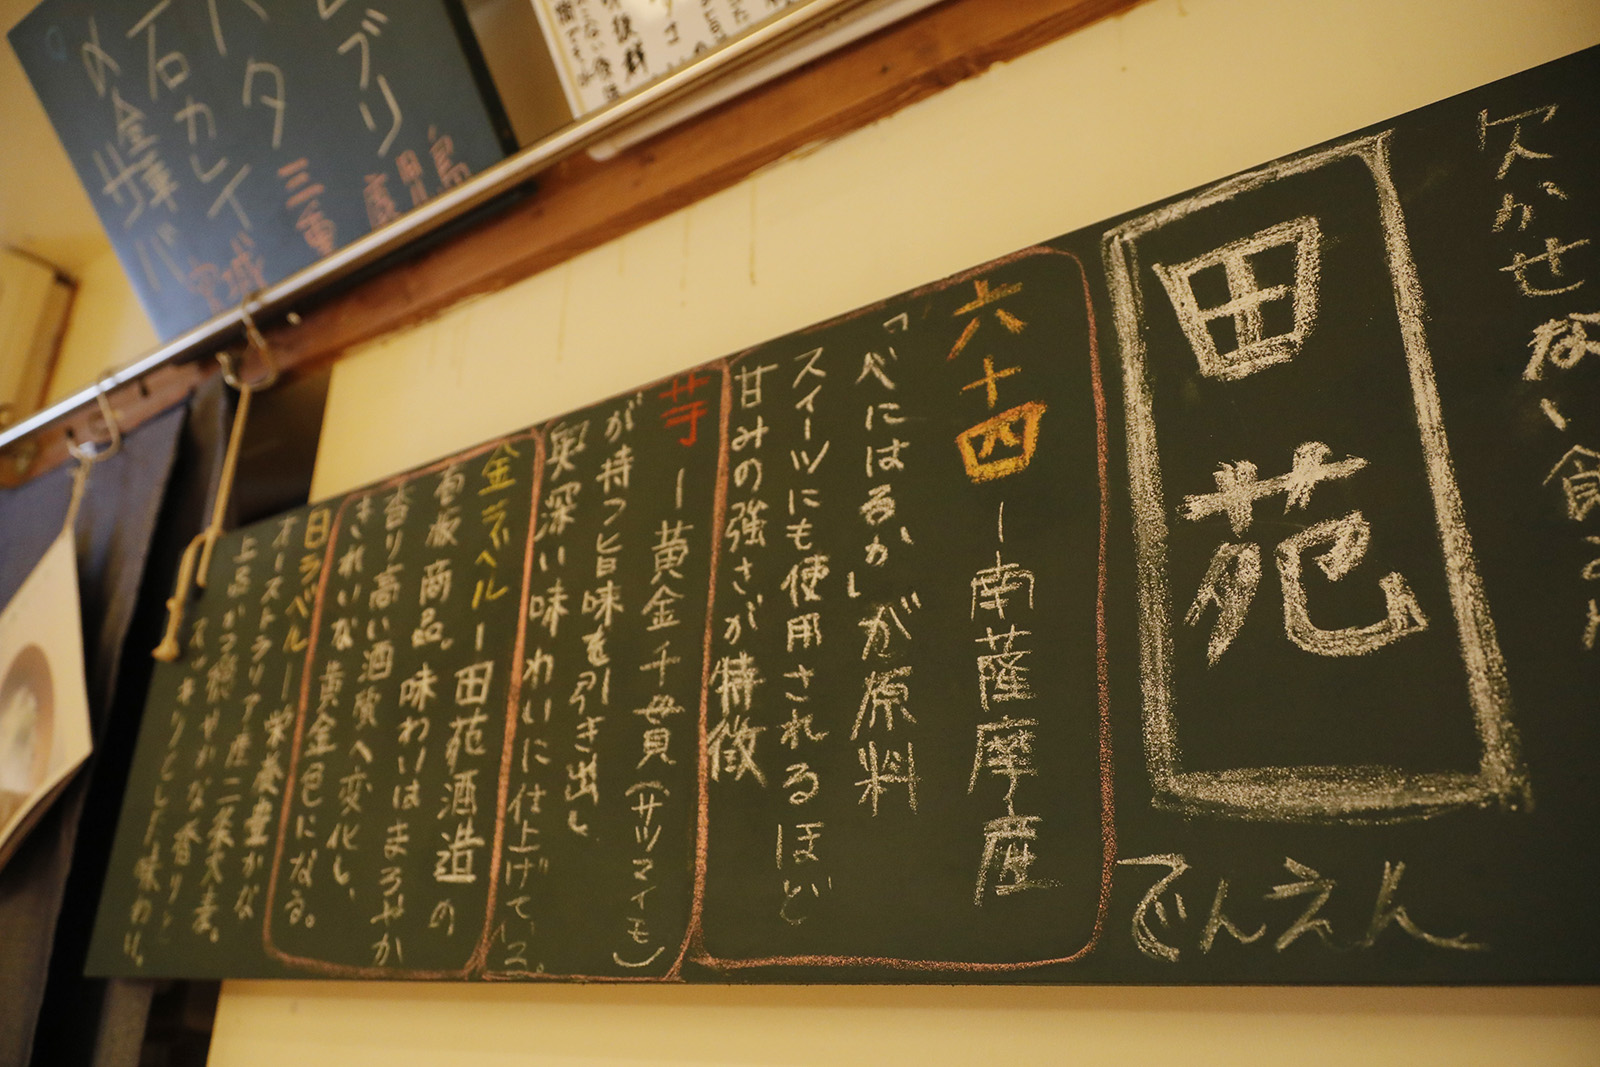 欠かせない
田苑
でんえん
六十四ー南薩摩産
「べにはるか」が原料
スイーツにも使用されるほど
甘みの強さが特徴
芋ー黄金千貫(サツマイモ)
が持つ旨味を引き出し
奥深い味わいに仕上げている。
金ラベルー田苑酒造の
看板商品。味わいはまろやか
香り高い酒質へ変化し、
きれいな黄金色になる。
白ラベルー栄養豊かな
オーストラリア産二条大麦。
上品かつ華やかな香りと
スッキリとした味わい。
ブリ
タイ 三重
石カレイ
〆金華サバ